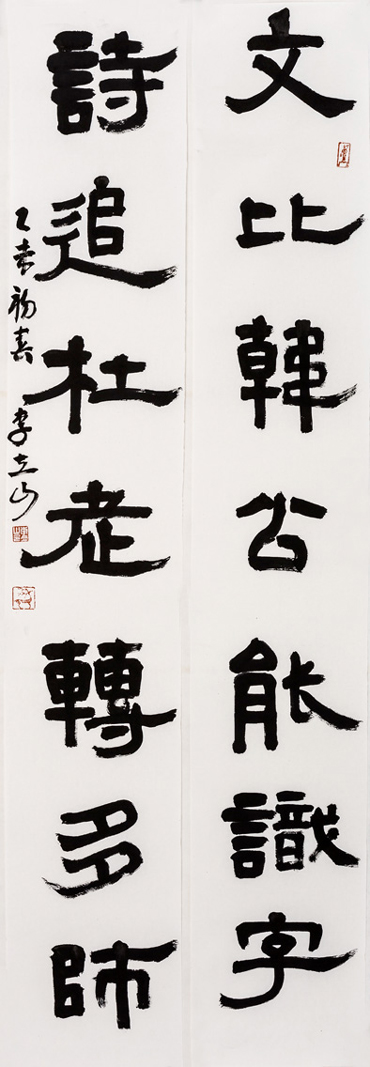 文比韓公能識字
詩追杜老轉多師
乙未初春 李立山